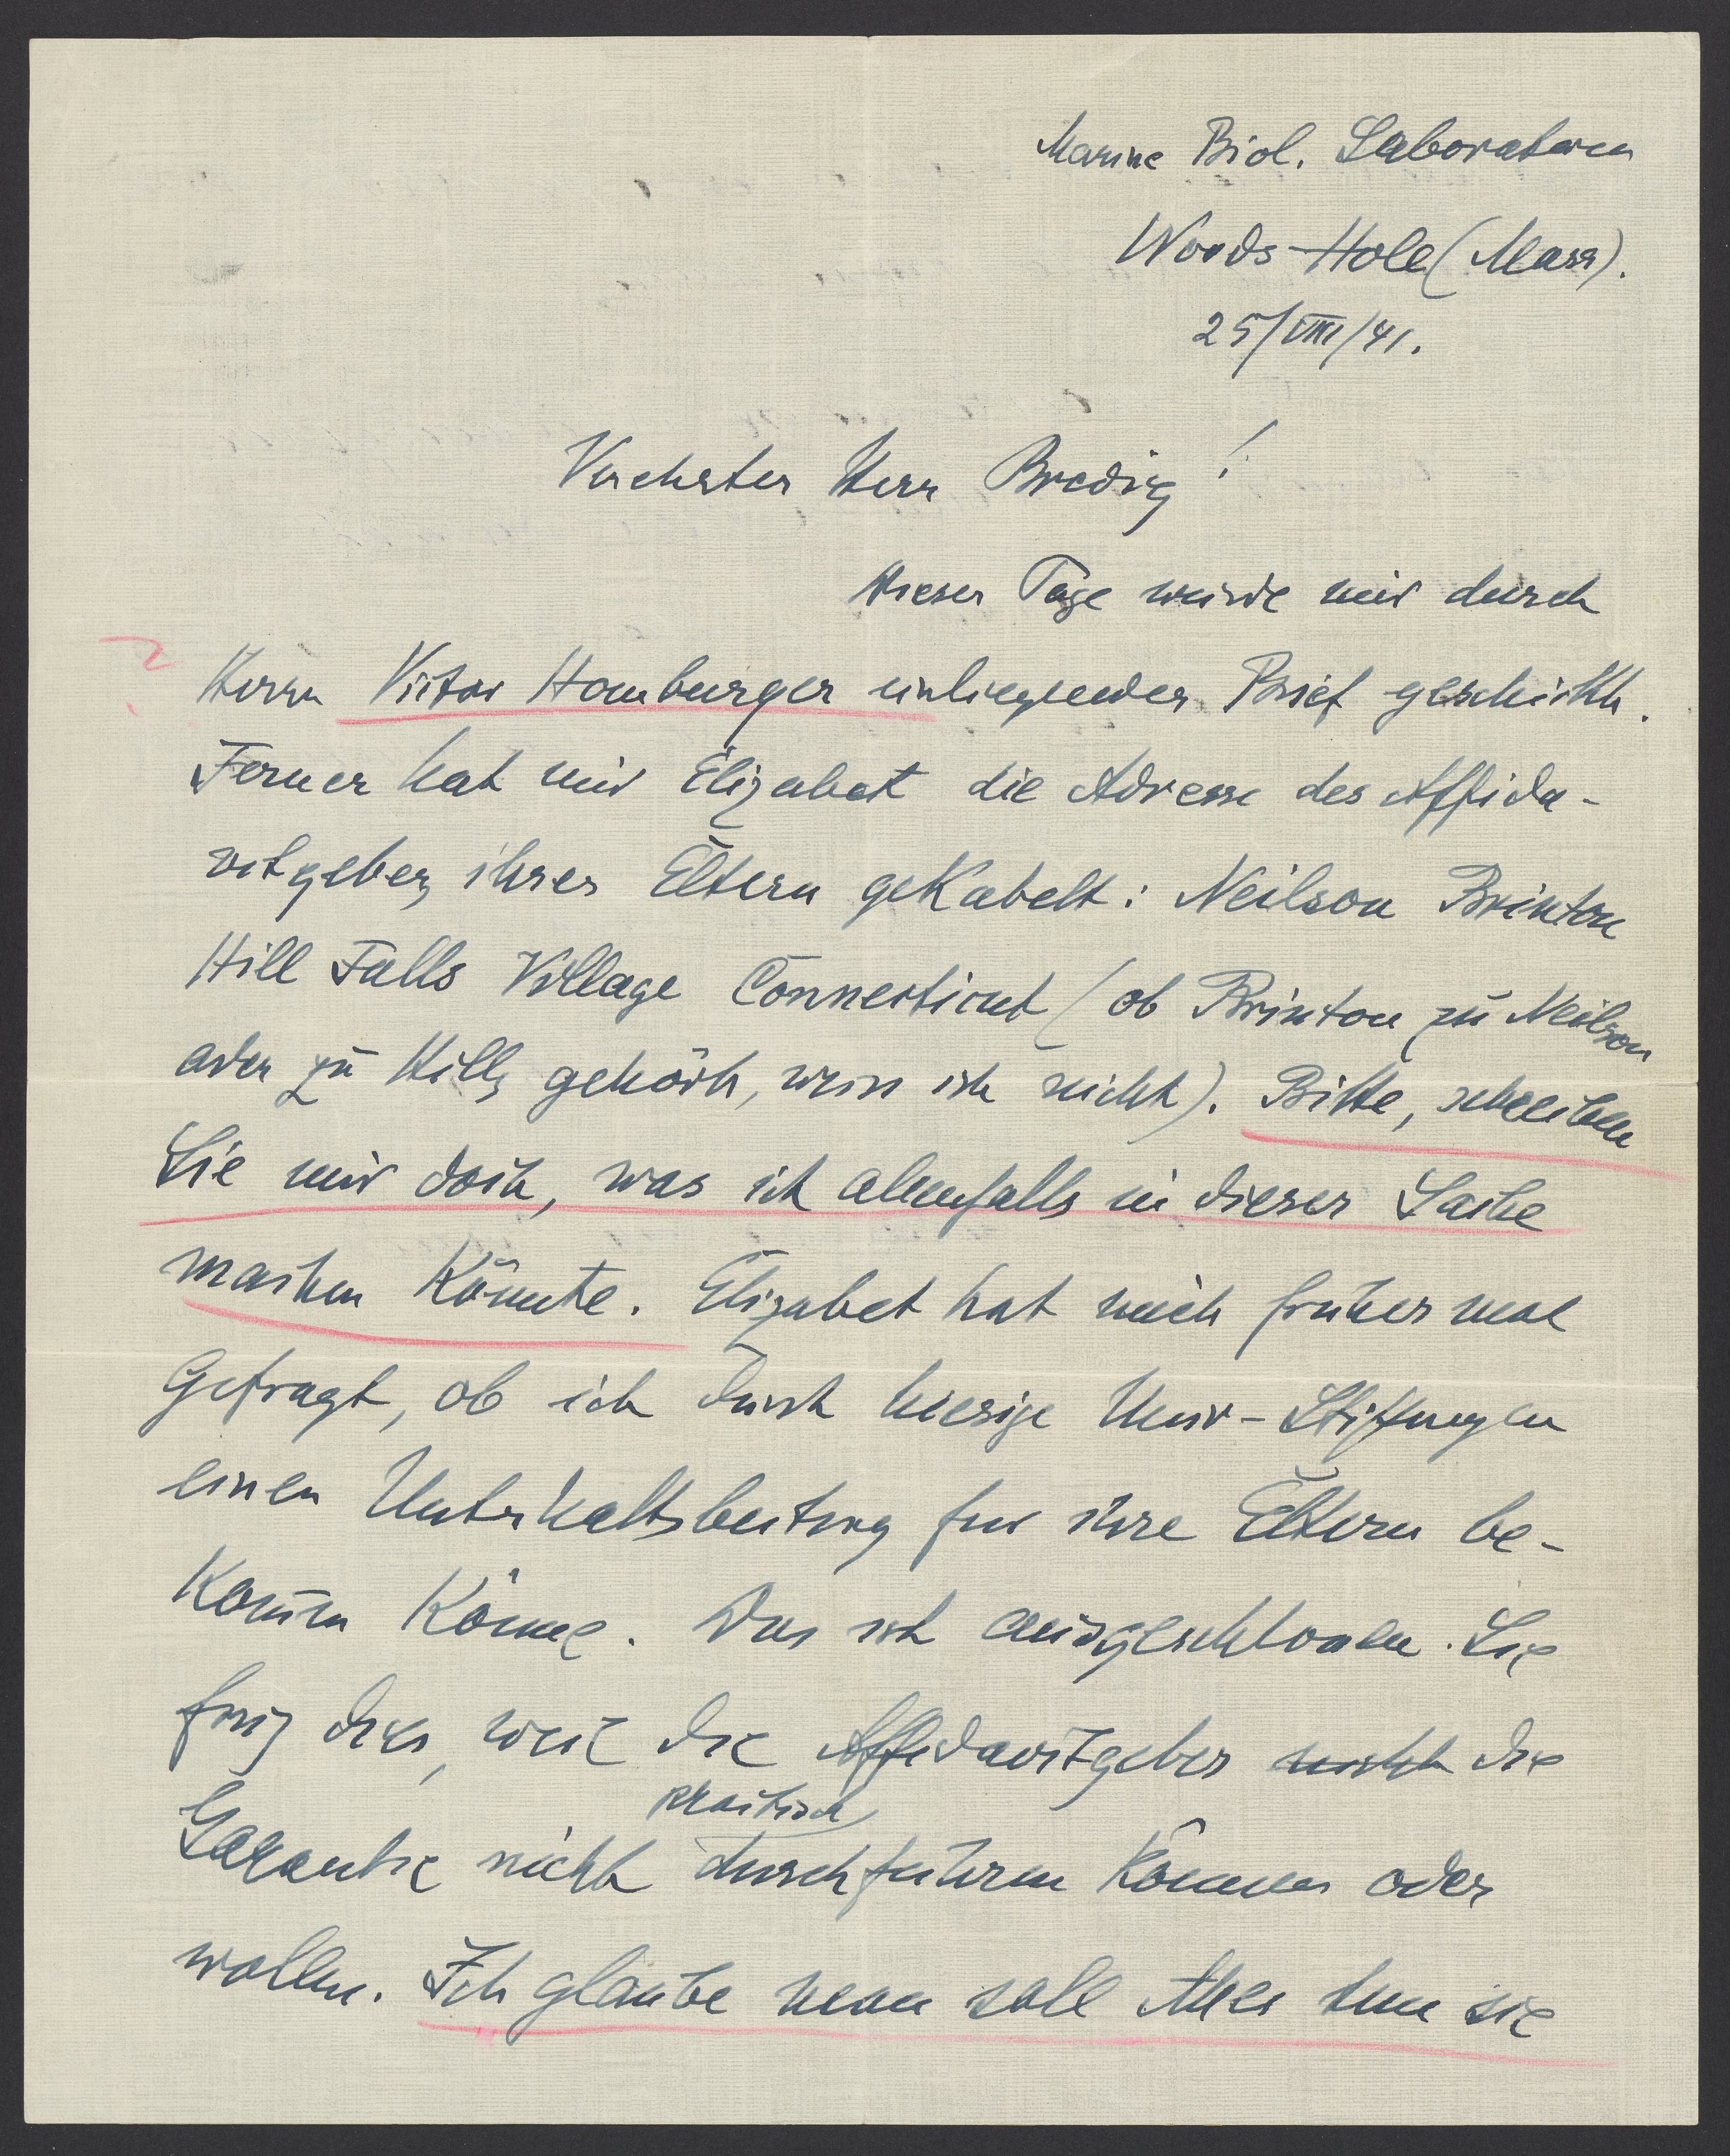 Marine Biol. Laboratorium
Woods-Hole (Mass).
25/VIII/41.
Verehrter Herr Bredig!
Dieser Tage wurde mir durch
Herrn Viktor Homburger einliegender Brief geschickt.
Ferner hat mir Elizabet die Adresse des Affida-
vitgebers ihrer Eltern gekabelt: Neilson Brinton
Hill Falls Village Connecticut (ob Brinton zu Neilson
oder zu Hill gehört, weiss ich nicht). Bitte, schreiben
Sie mir doch, was ich allenfalls in dieser Sache
machen könnte. Elizabet hat mich früher mal
gefragt, ob ich durch hiesige Univ-Stiftungen
einen Unterhaltsbeitrag fur ihre Eltern be-
kommen könne. Das ist ausgeschlossen. Sie
frug dies, weil die Affidavitgeber nicht die
praktisch
Garantie nicht durchführen können oder
wollen. Ich glaube man soll Alles tun sie